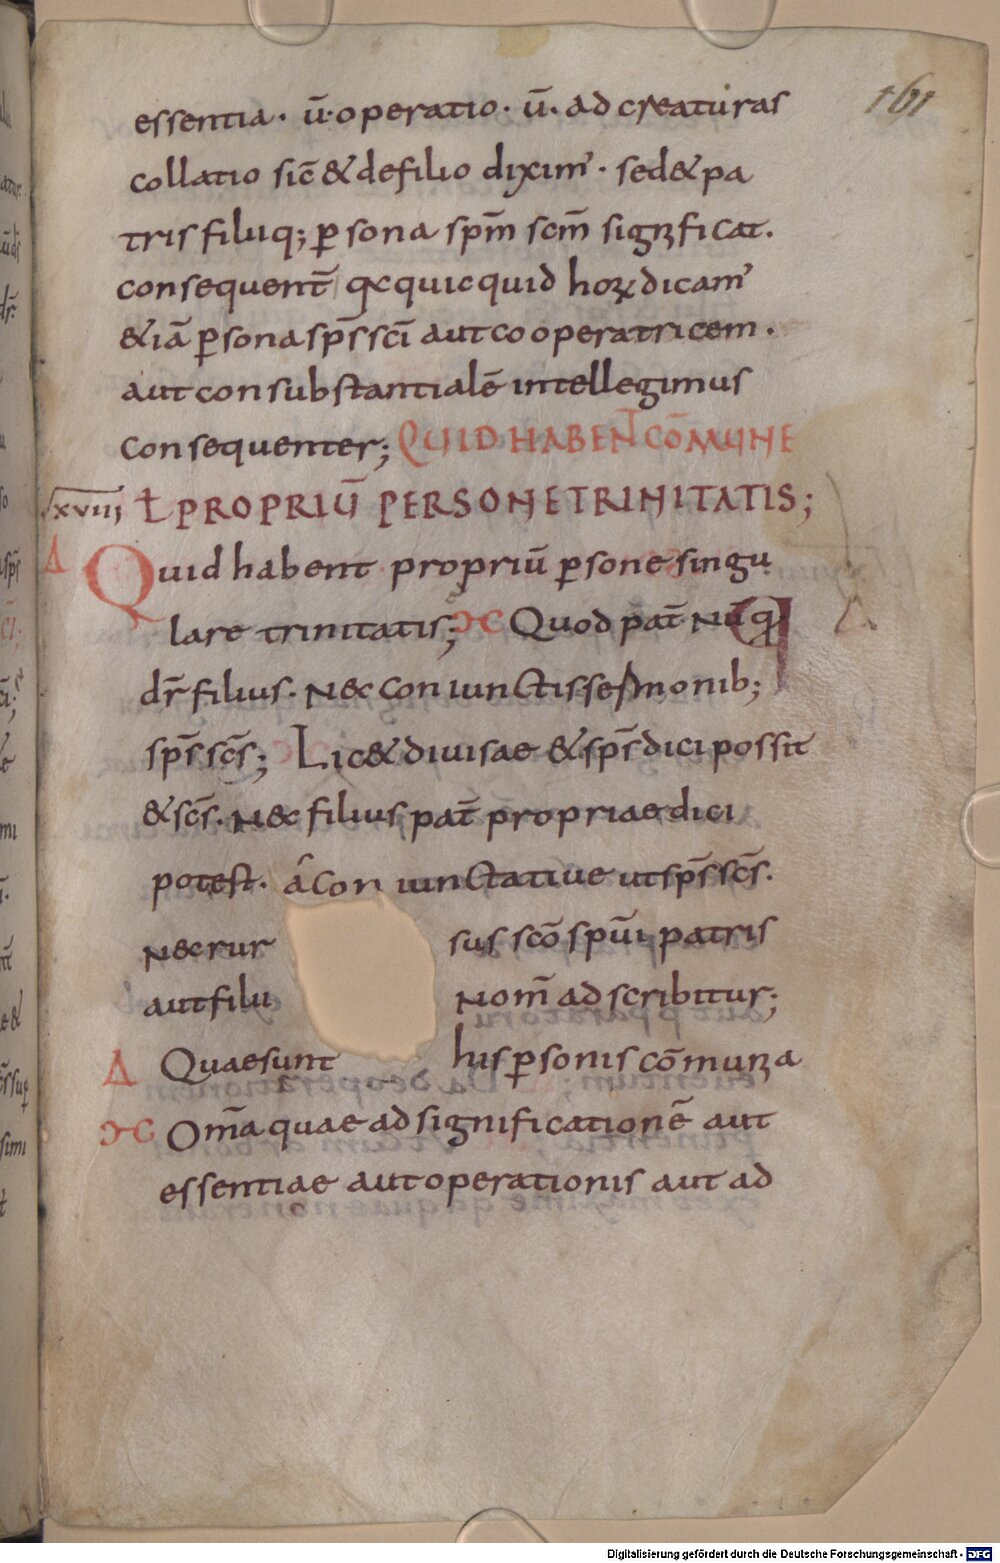 161
essentia. ū. operatio. ū. ad creaturas
collatio sic̄ & defilio diximꝰ. sed & pa
tris filiiq; ꝑsona spm̄ scm̄ significat.
consequent̄ qcquicquid hoꝝ dicamꝰ
& iā ꝑsona sp̄s sc̄i aut cooperatricem.
aut consubstantialē intellegimus
consequenter; QUID HABENT̄ CŌMUNE
XVIII ɫ PROPRIŪ PERSONE TRINITATIS;
Δ Quid habent propriū ꝑsone singu
lare trinitatis; Quod pat̄ nūq
dr̄ filius. Nec coniunctis sermonib;
sp̄s sc̄s; Lic& diuisae & sp̄s dici possit
& sc̄s. Nec filius pat̄ propriae dici
potest. a coniunctatiue ut sp̄s sc̄s.
Nec rur sus scō spūi patris
aut filii nom̄ adscribitur;
Δ Quae sunt his ꝑsonis cōmunia
Om̄a quae ad significationē aut
essentiae aut operationis aut ad
Digitalisierung gefördert durch die Deutsche Forschungsgemeinschaft - DFG